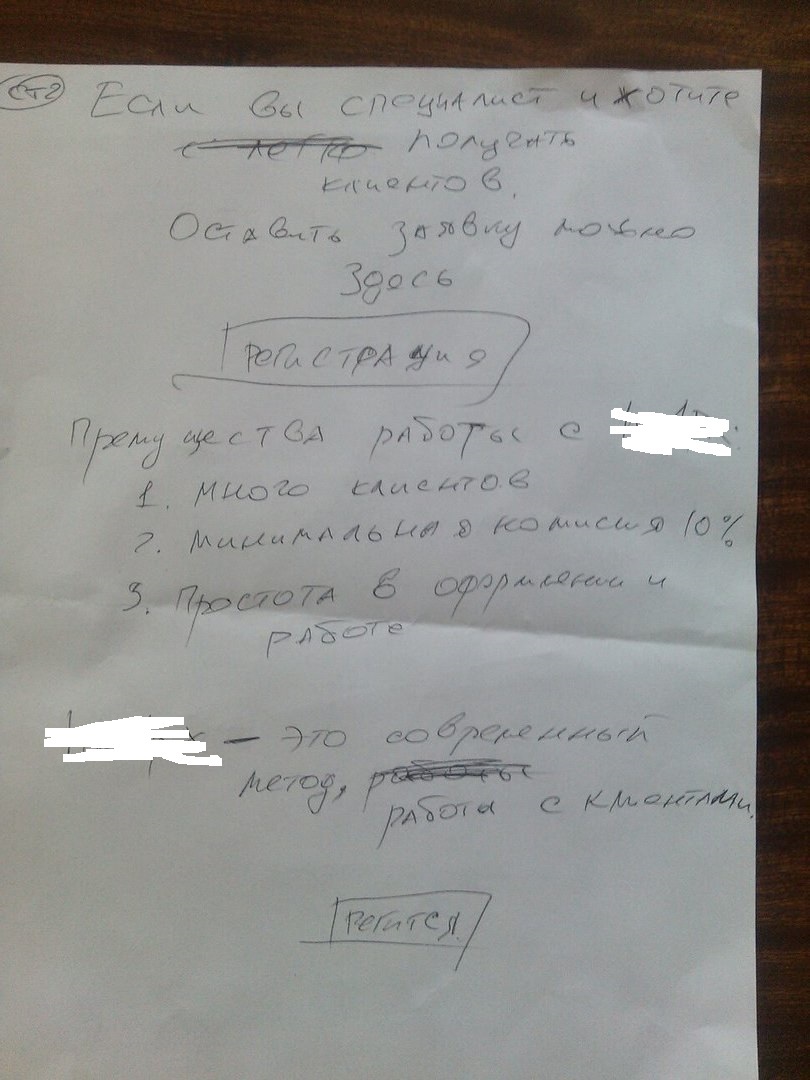 СТ2 Если вы специалист и хотите
получать
клиентов.
Оставить заявку можно
здесь
Регистрация
Премущества работы с
1. много клиентов
2. минимальная комисия 10%
3. Простота в оформлении и
работе
– это современный
метод, работы
работа с клиентами.
Регится